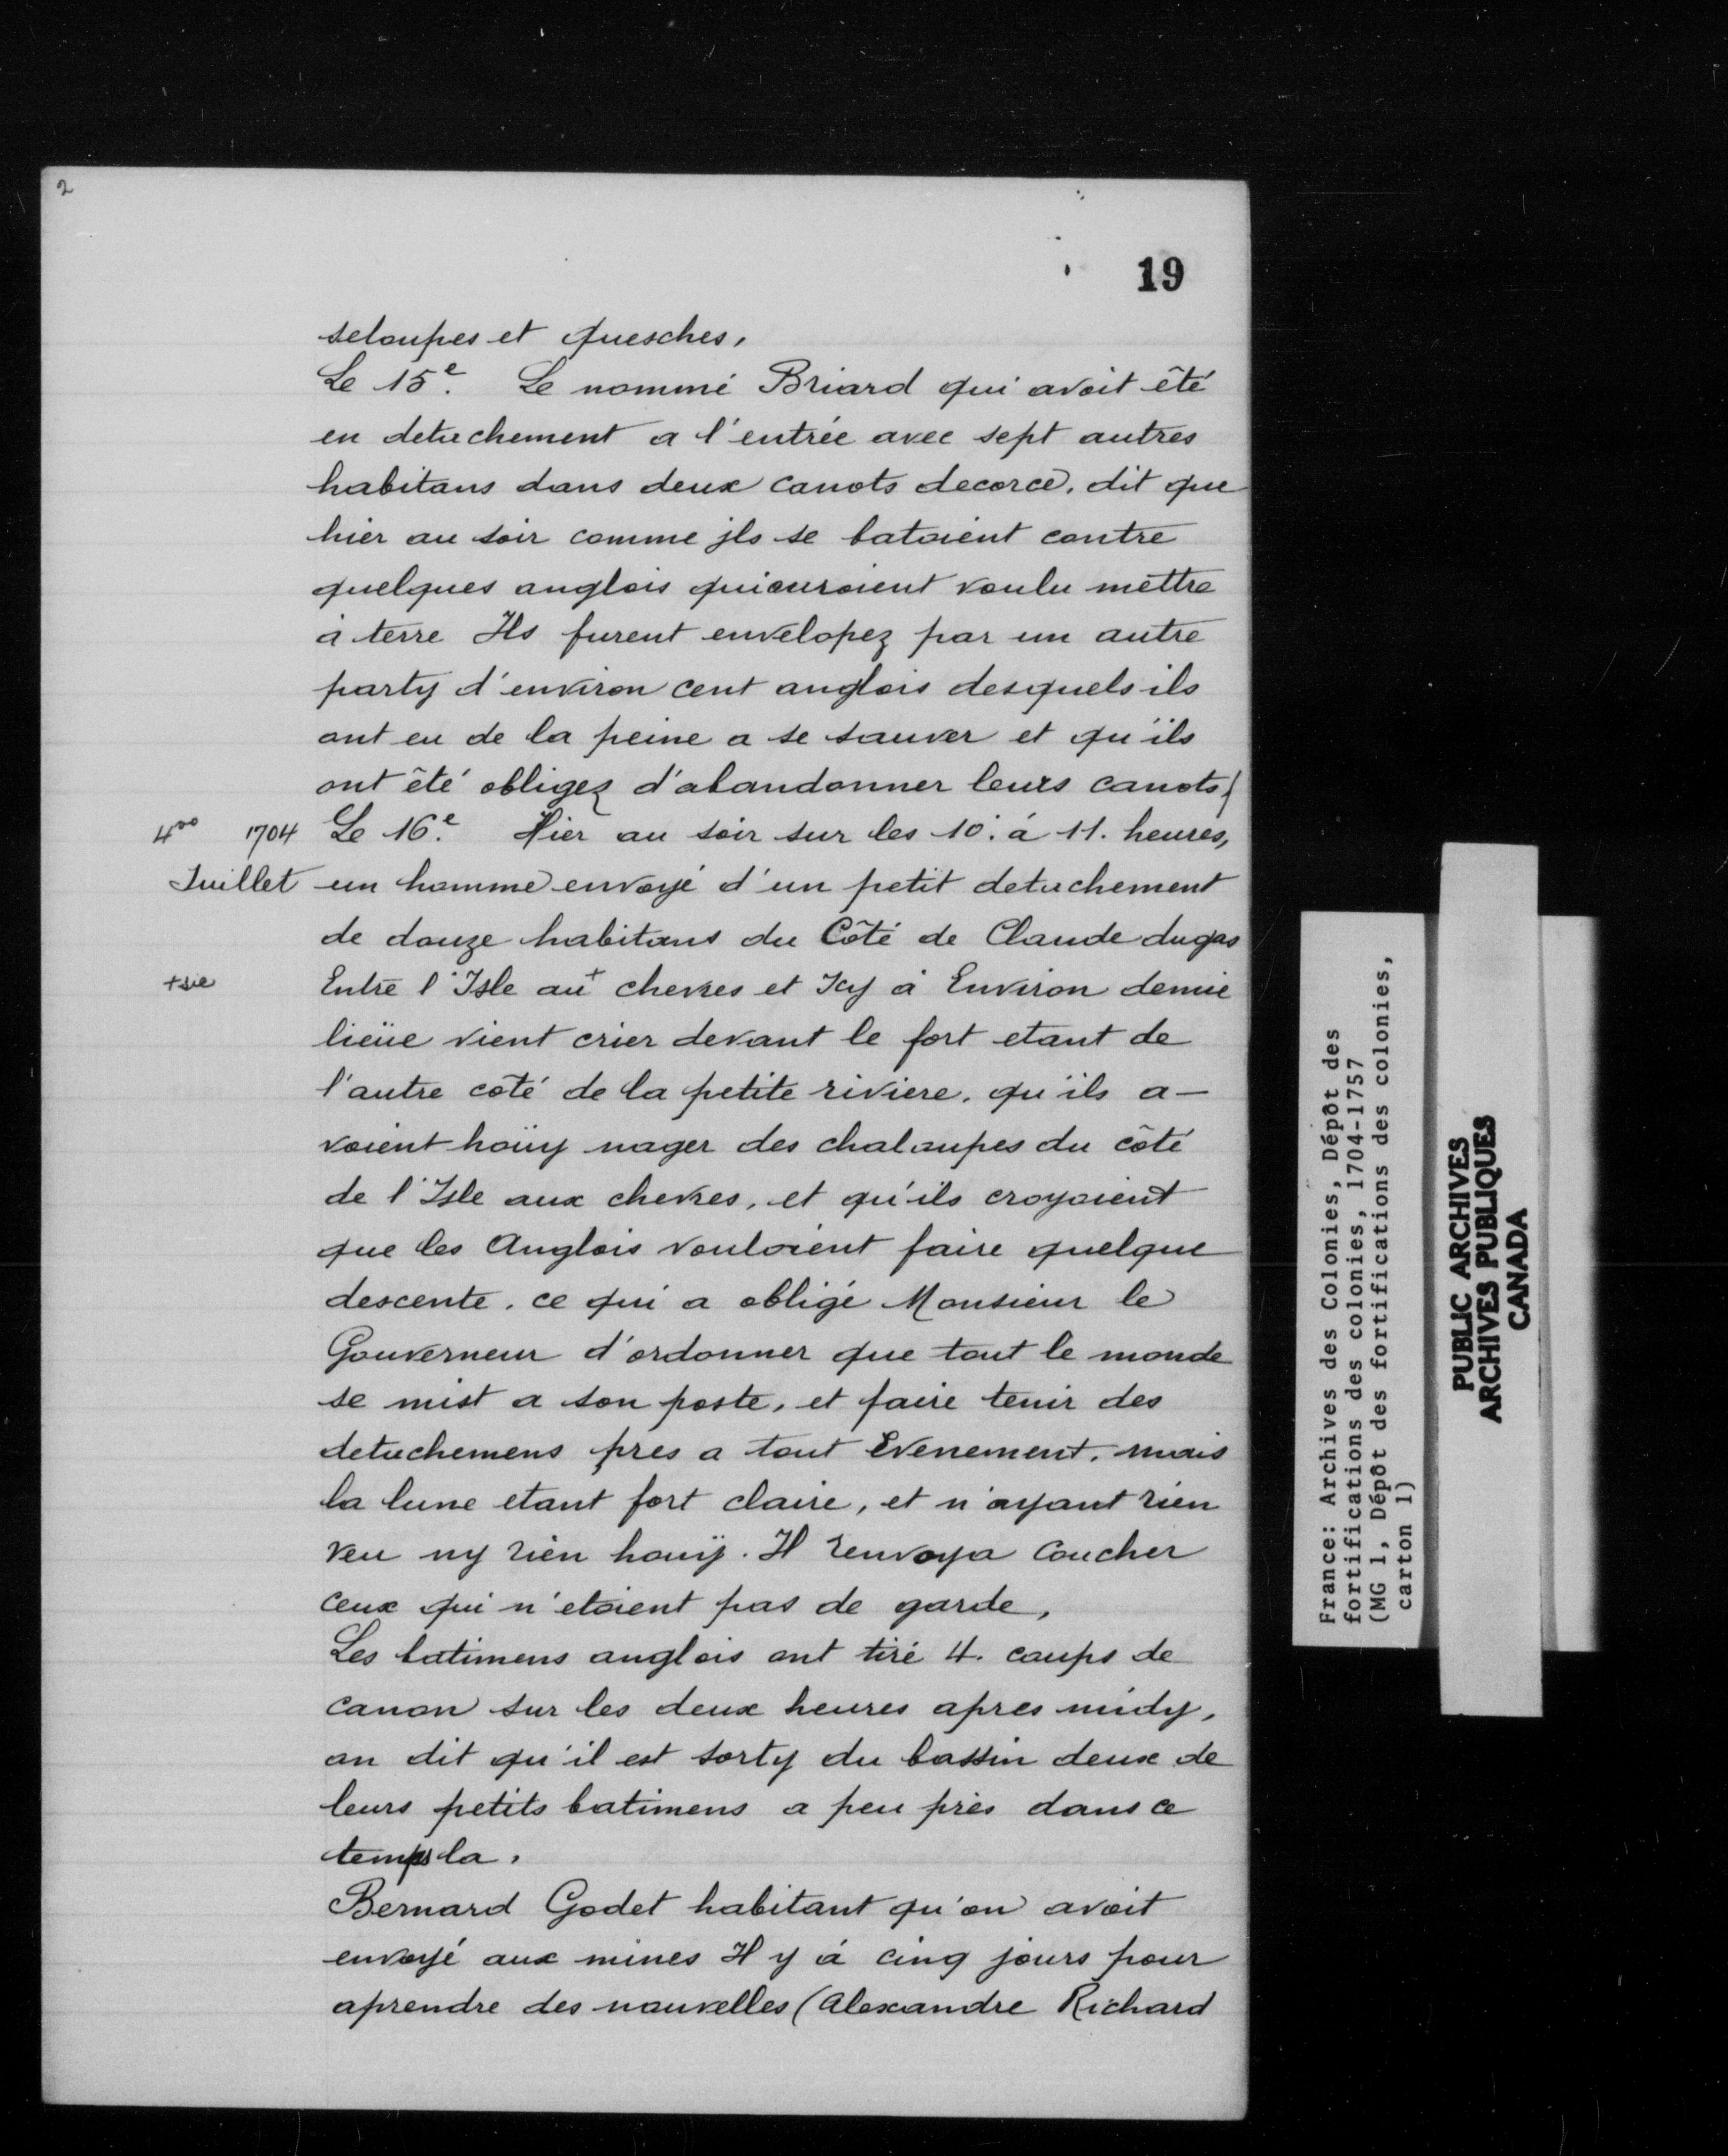 2
19
seloupes et quesches,
Le 15e. Le nommé Briard qui avoit été
en detachement a l'entrée avec sept autres
habitans dans deux canots decorce, dit que
hier au soir comme jls se bataient contre
quelques anglois qui auroient voulu mettre
a terre Ils furent envelopez par un autre
party d'environ cent anglois desquels ils
ont eu de la peine a se sauver et qu'ils
ont été obligez d'abandonner leurs canots
4oo 1704 Le 16e. Hier au soir sur les 10. à 11. heures,
Juillet un homme envoyé d'un petit detachement
de douze habitans du Côté de Claude dugas
+sic Entre l'Isle au+ chevres et Icy à Environ demie
lieüe vient crier devant le fort etant de
l'autre coté de la petite riviere, qu'ils a-
voient hoüy nager des chaloupes du côté
de l'Isle aux chevres, et qu'ils croyoient
que les Anglois vouloient faire quelque
descente, ce qui a obligé Monsieur le
Gouverneur d'ordonner que tout le monde
se mist a son poste, et faire tenir des
detachemens pres a tout Evenement, mais
la lune etant fort claire, et n'ayant rien
veu ny rien houÿ. Il renvoya Coucher
ceux qui n'etoient pas de garde,
Les batimens anglois ont tiré 4. coups de
canon sur les deux heures apres midy,
on dit qu'il est sorty du bassin deux de
leurs petits batimens a peu près dans ce
temps la,
Bernard Godet habitant qu'on avoit
envoyé aux mines Il y à cinq jours pour
aprendre des nouvelles (Alexandre Richard
France: Archives des Colonies, Dépôt des
fortifications des colonies, 1704-1757
(MG 1, Dépôt des fortifications des colonies,
carton 1)
PUBLIC ARCHIVES
ARCHIVES PUBLIQUES
CANADA